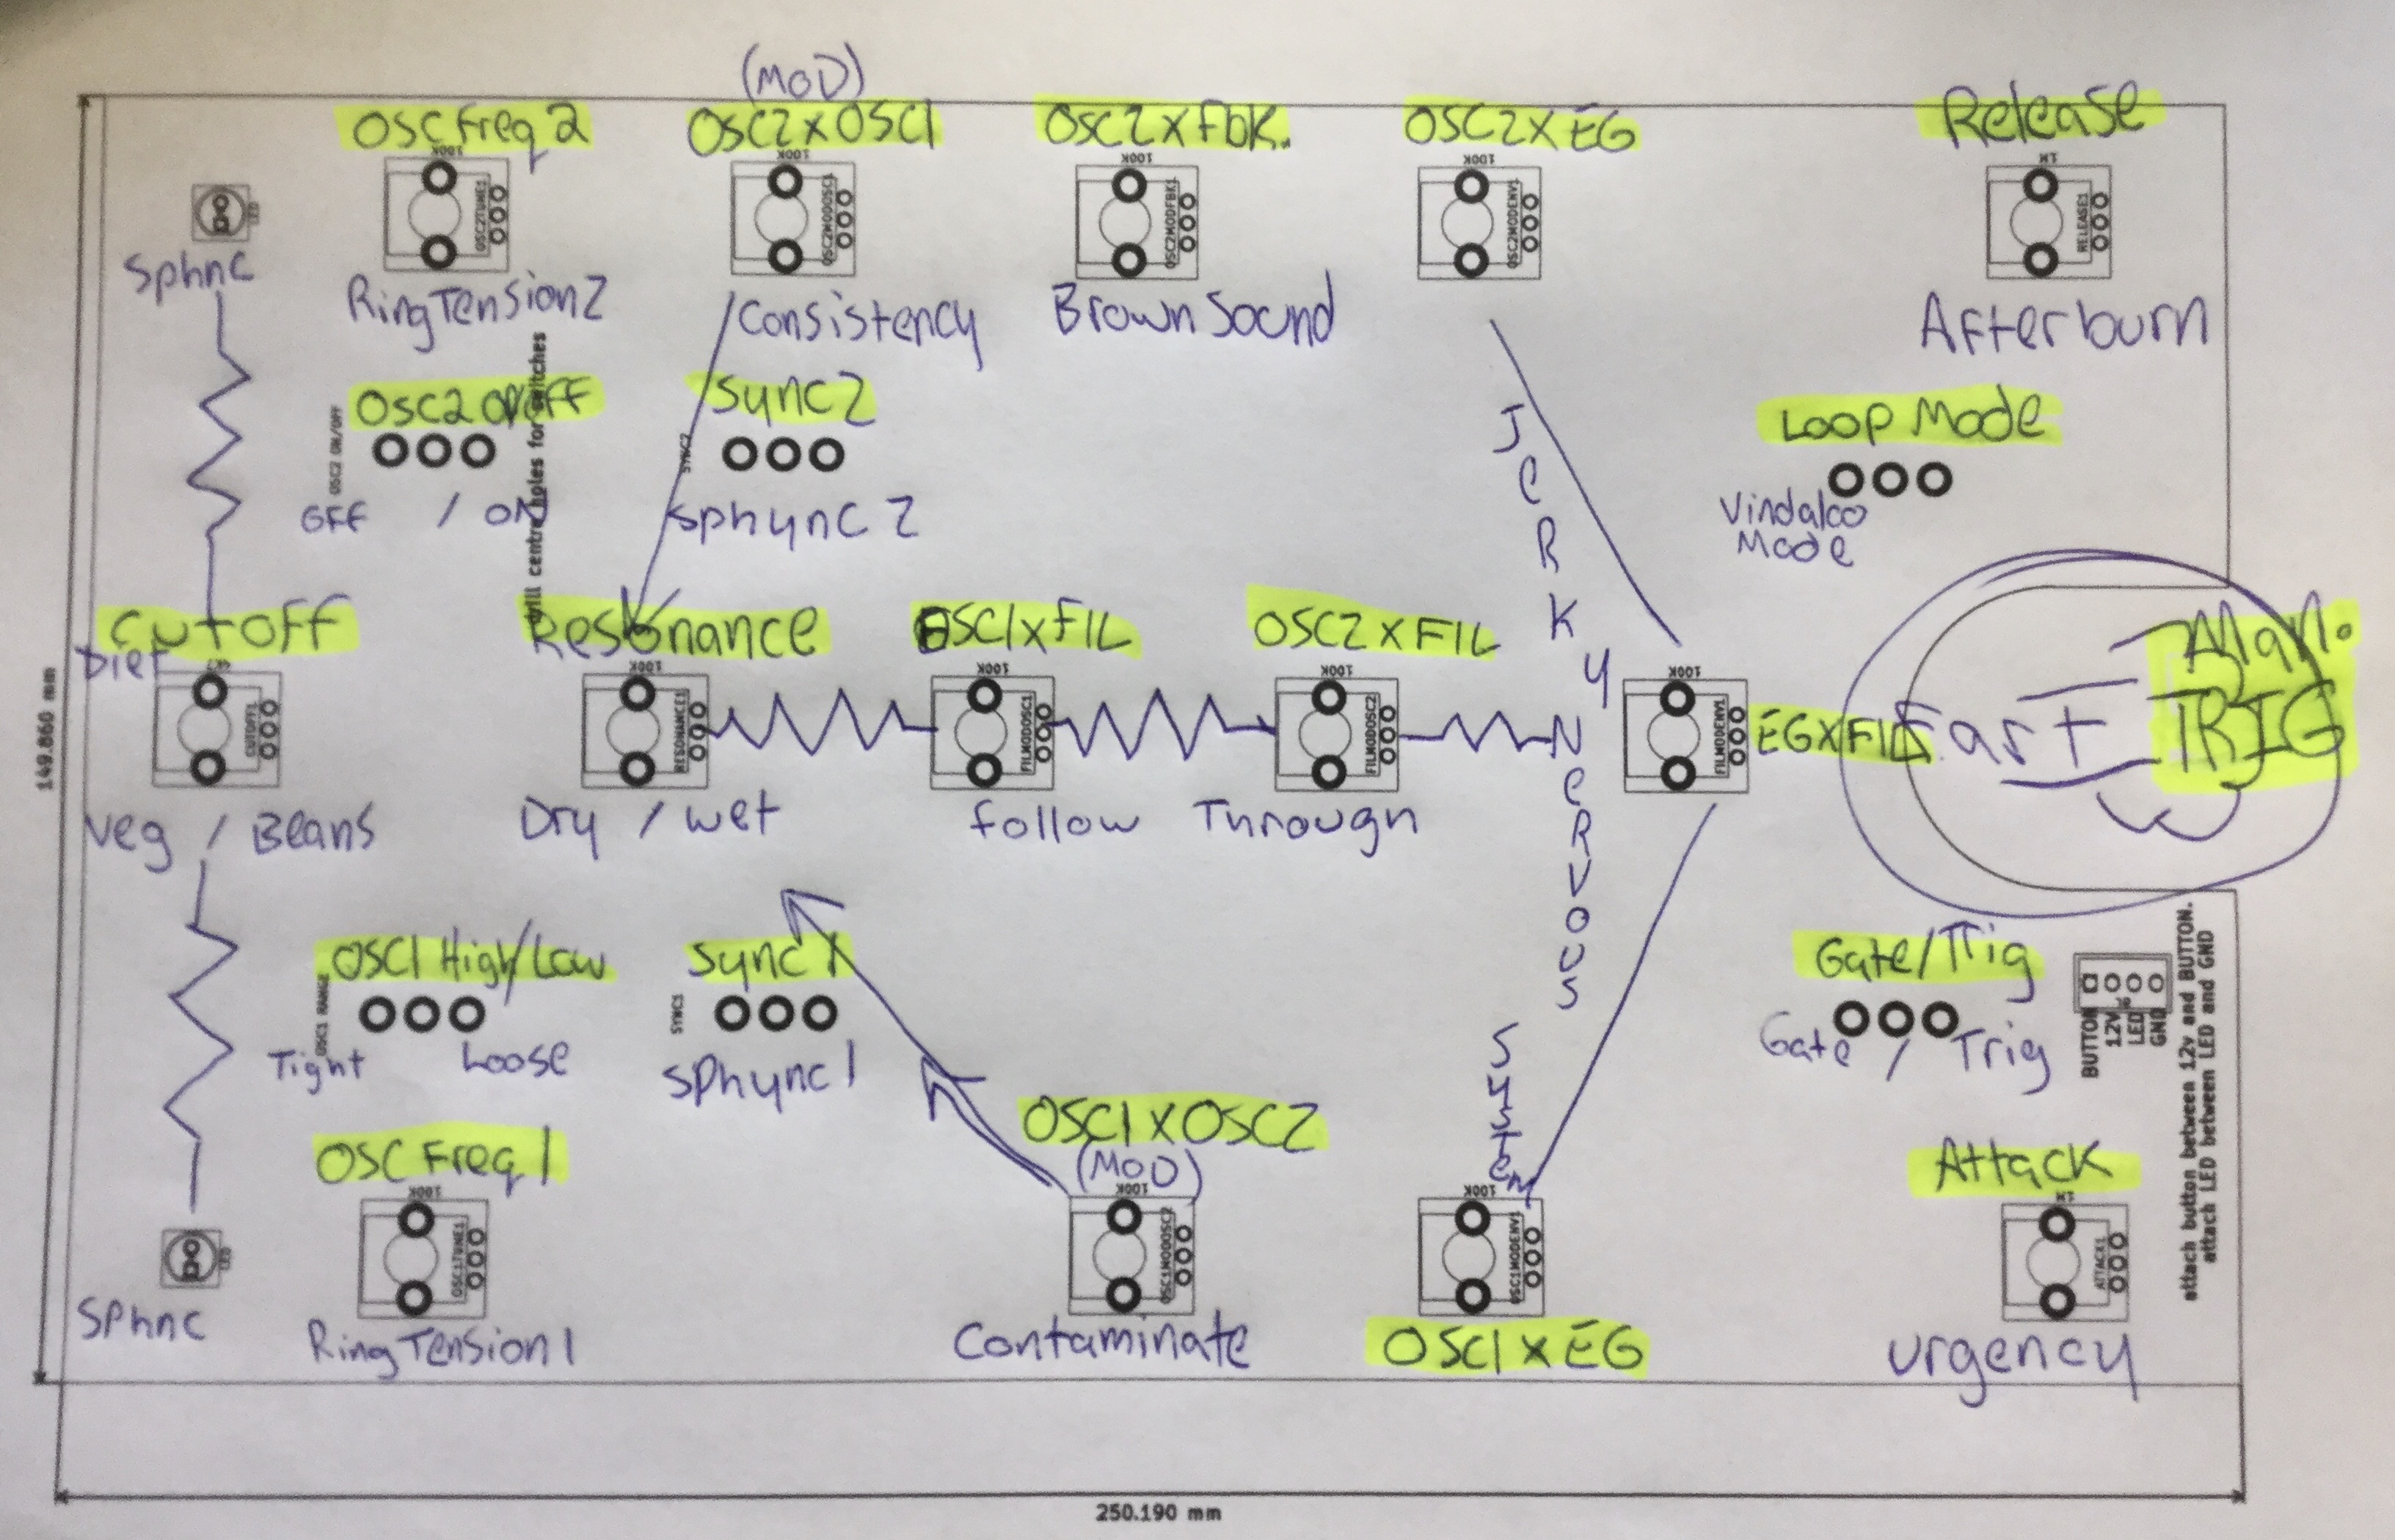 (MOD)
OSC Freq 2
OSC2 x OSC1
OSC2 x Fbk.
OSC2 x EG
Release
100K
100K
100K
100K
1M
LED
OSC2TUNE1
OSC2MODOSC1
OSC2MODFBK1
OSC2MODENV1
RELEASE1
Sphnc
RingTension2
Consistency
Brown Sound
Afterburn
OSC2 ON/OFF
Sync2
Loop Mode
OSC2 ON/OFF
drill centre holes for switches
SYNC2
OFF / ON
Sphync 2
Vindaloo
Mode
Jerky
Nervous
System
Cutoff
Resonance
OSC1 x FIL
OSC2 x FIL
Man.
TRIG
Diet
100K
100K
100K
100K
CUTOFF1
RESONANCE1
FILMODOSC1
FILMODOSC2
FILMODENV1
EG x FIL
Fart
149.860 mm
Veg / Beans
Dry / wet
Follow Through
OSC1 High/Low
Sync 1
Gate/Trig
OSC1 RANGE
SYNC1
Tight Loose
Sphync1
Gate / Trig
J6
BUTTON
12V
LED
GND
attach button between 12v and BUTTON.
attach LED between LED and GND
OSC Freq 1
OSC1 x OSC2
(MOD)
Attack
100K
100K
100K
LED
OSC1TUNE1
OSC1MODOSC2
OSC1MODENV1
ATTACK1
Sphnc
RingTension1
Contaminate
OSC1 x EG
urgency
250.190 mm